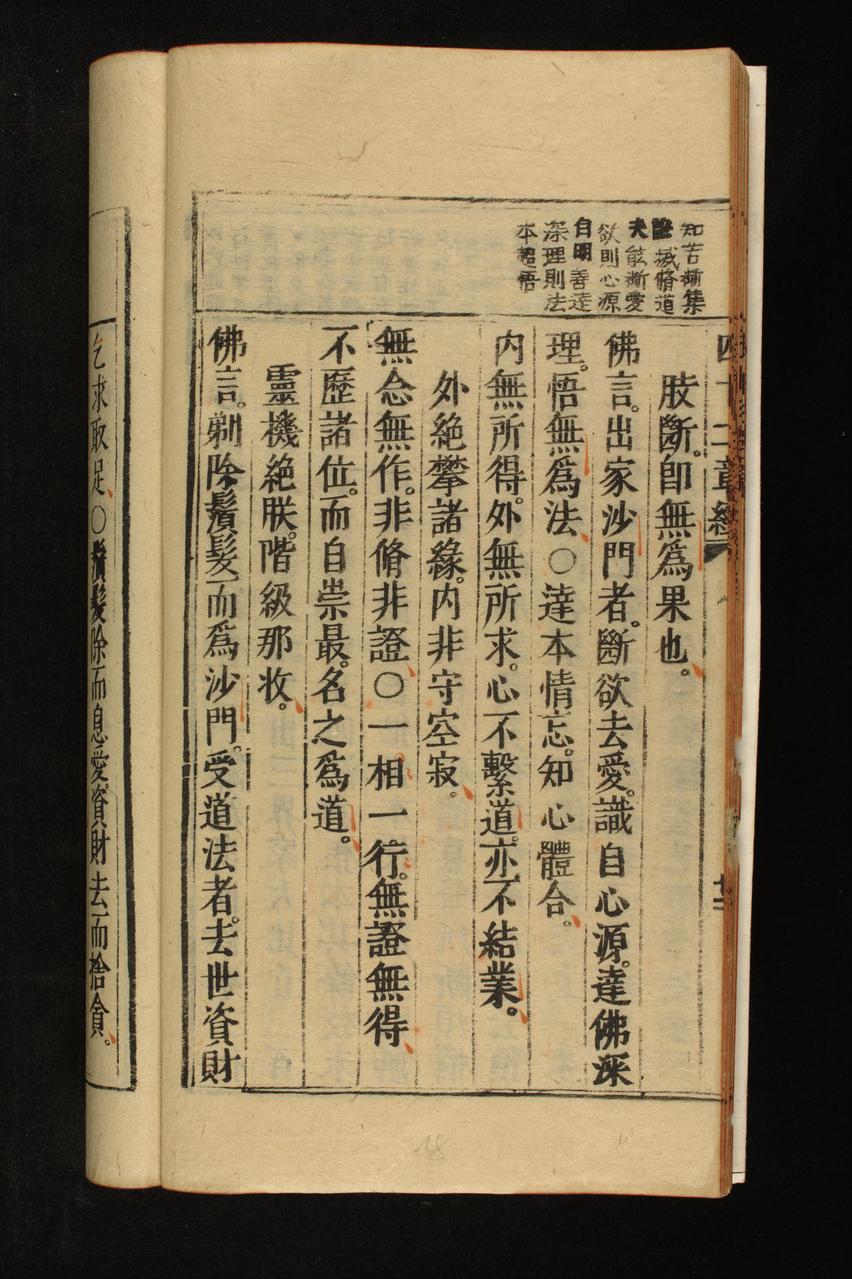 知苦斷集
證滅脩道
夫能斷愛
欲則心源
自明善達
深理則法
本體悟
四十二章經
肢斷。即無爲果也。
佛言。出家沙門者。斷欲去愛。識自心源。達佛深
理。悟無爲法、〇達本情忘。知心體合。
内無所得。外無所求。心不繫道。亦不結業。
外絶攀諸緣。内非守空寂。
無念無作。非脩非證、〇一相一行。無證無得、
不歷諸位。而自崇最。名之爲道。
靈機絶朕。階級那收。
佛言。剃除鬚髮。而爲沙門。受道法者。去世資財
乞求取足、〇鬚髮除而息愛。資財去而捨貪。